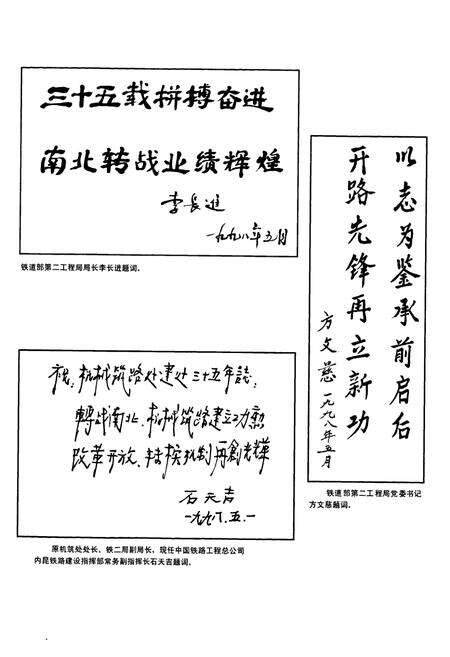 三十五载拼搏奋进
南北转战业绩辉煌
李长进
一九九八年五月
铁道部第二工程局局长李长进题词。
以志为鉴承前启后
开路先锋再立新功
方文慈
一九九八年五月
铁道部第二工程局党委书记
方文慈题词。
祝:机械筑路处建处三十五年誌:
轉战南北,机械筑路建立功勳
改革开放,转换机制再創光輝
石天吉
一九九八.五.一
原机筑处处长、铁二局副局长,现任中国铁路工程总公司
内昆铁路建设指挥部常务副指挥长石天吉题词。